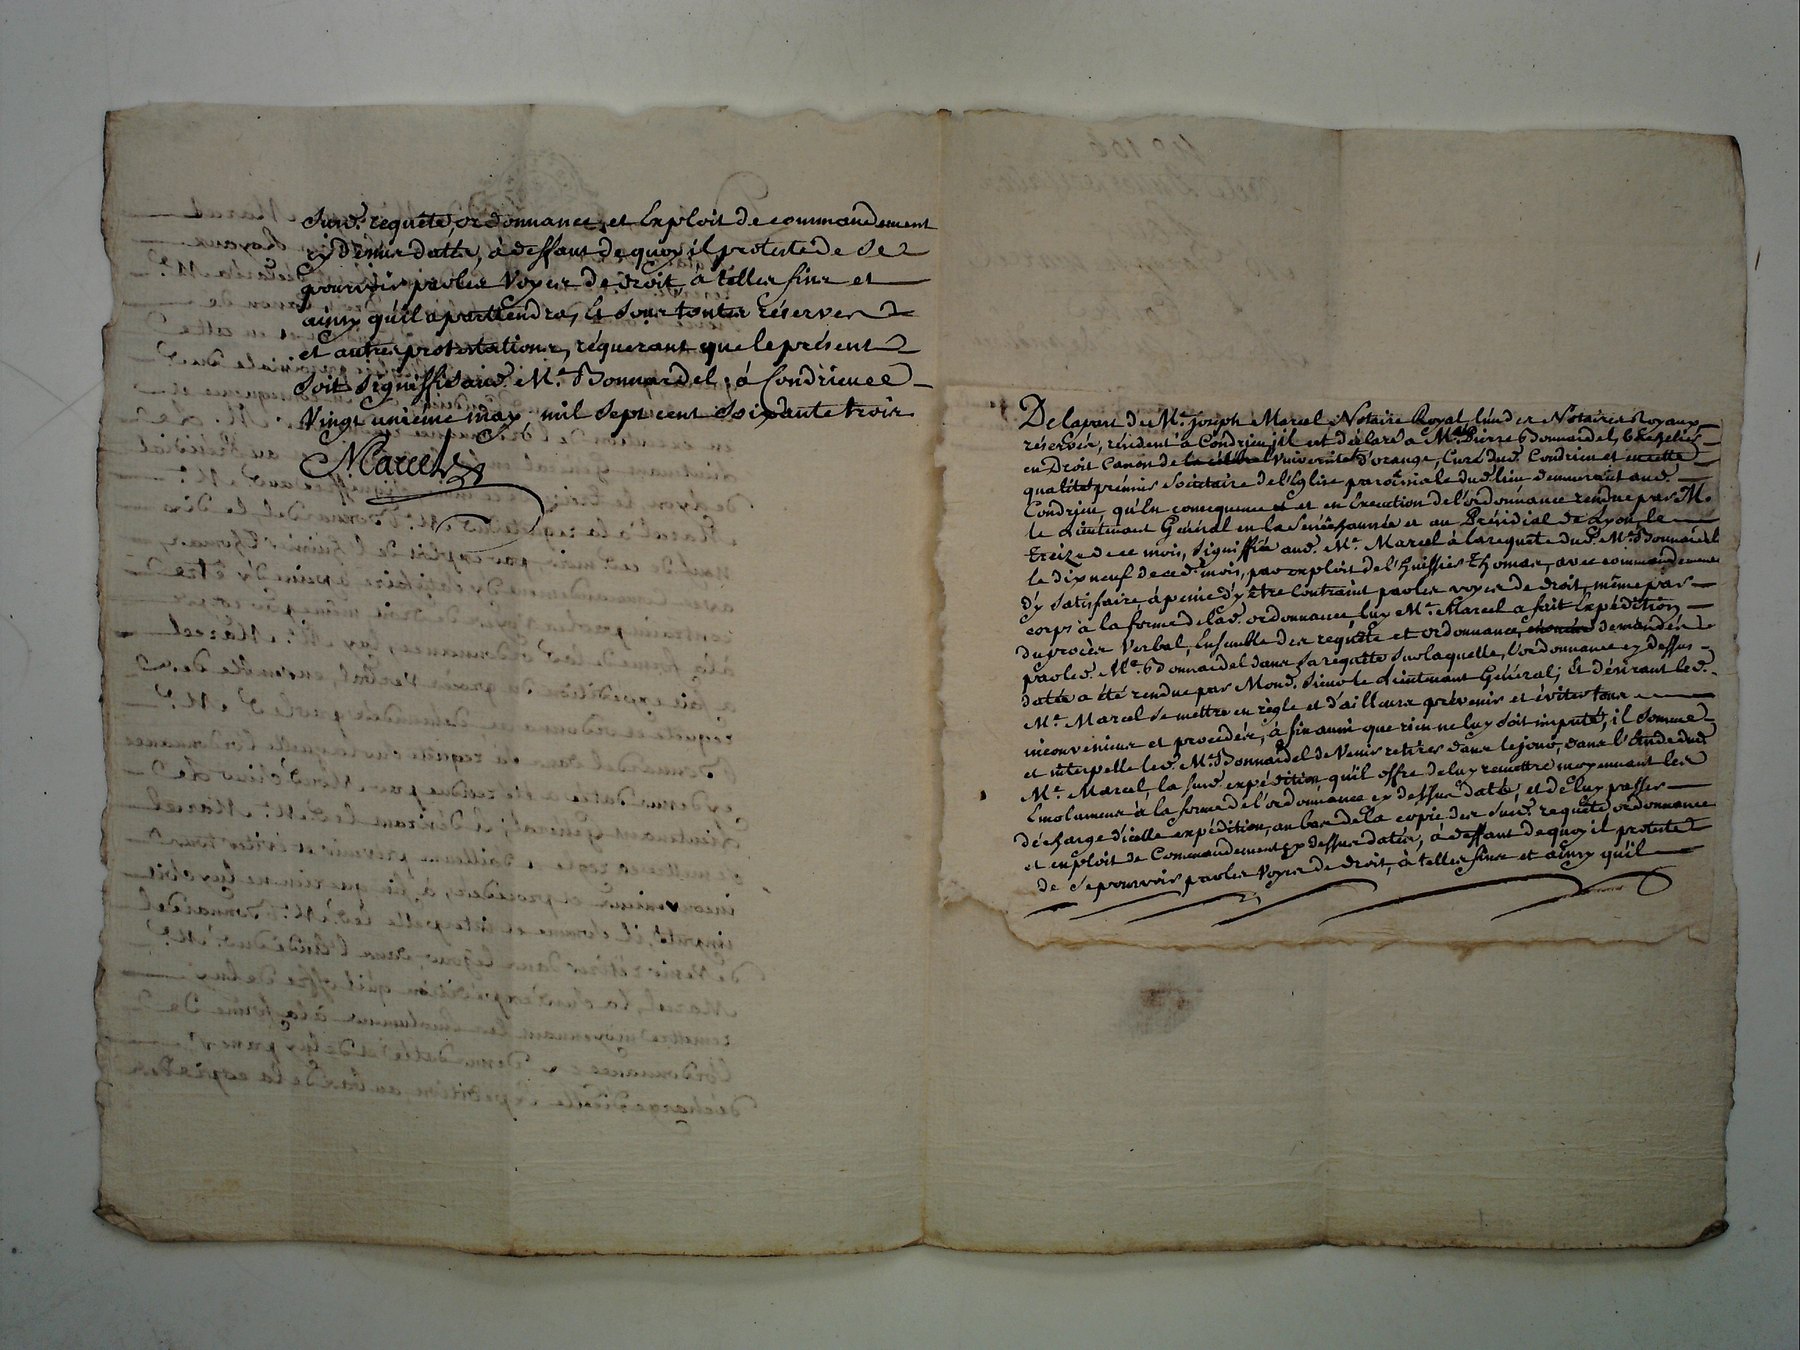 Susd. requête, ordonnance, et Exploit de commandement
cy dessus datte, à deffaut de quoy il proteste de se
pourvoir par les Voyes de droit à telles fins et
ainsy qu'il apartiendra, Et sous toutes réserves
et autres protestations, réquerant que le présent
soit signiffié aud. Me. Bonnardel; à Condrieu ce
Vingt unième may mil Sept cent soixante trois
Marcel
De la part de Me. Joseph Marcel Notaire Royal, l'un des Notaires Royaux
réservés, résident à Condrieu, il est déclaré à Me. Pierre Bonnardel,
en Droit Canon de Université d'orange, Curé dud. Condrieu et en cette
qualité premier Sociétaire de l'Eglise paroissiale dud. lieu demeurant aud.
Condrieu, qu'En consequence et en Execution de l'ordonnance rendue par M.
le Lieutenant Général en la Sénéchaussée et au Présidial de Lyon le
treize de ce mois, signiffiée aud. Me. Marcel à la requête dud. Me. Bonnardel
le dix neuf de ced. mois, par exploit de l'huissier Thomas, avec commandement
d'y satisfaire à peine d'y être Contraint par les voyes de droit, même par
corps à la forme de lad. ordonnance, luy Me. Marcel a fait Expédition
du procès Verbal, Ensemble des requête et ordonnance, demandée
par led. Me. Bonnardel dans sa requête sur laquelle, l'ordonnance cy dessus
datée a été rendue par Mond. Sieur le Lieutenant Général; Et désirant led.
Me. Marcel se mettre en règle et d'ailleurs prévenir et éviter tous
inconveniens et procedés, à fin aussi que rien ne luy soit imputé, il somme
et interpelle led. Me. Bonnardel de Venir retirer dans le jour, dans l'Etude dud.
Me. Marcel, la susd. expédition qu'il offre de luy remettre moyennant les
Emolumens à la forme de l'ordonnance cy dessus datée, et de luy passer
décharge d'icelle expédition, au bas de la copie des susd. requête ordonnance
et exploit de Commandement cy dessus datés, à deffaut de quoy il proteste
de se pourvoir par les Voyes de droit, à telles fins et ainsy qu'il